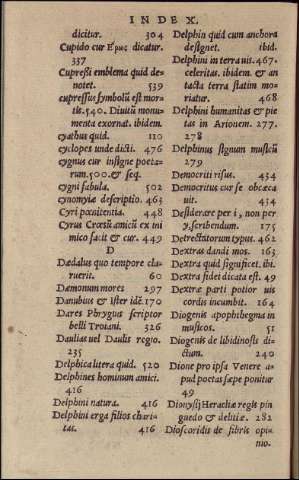 INDEX.
dicitur. 304
Cupido cur Ερως dicatur.
337
Cupressi emblema quid de-
notet. 539
cupressus symbolũ est mor-
tis. 540. Diuitũ monu-
menta exornat. ibidem.
cyathus quid. 110
cyclopes unde dicti. 476
cygnus cur insigne poeta-
rum. 500. & seq.
cygni fabula. 502
cynomyiæ descriptio. 463
Cyri pœnitentia. 448
Cyrus Crœsũ amicũ ex ini
mico facit & cur. 449
D
Dædalus quo tempore cla-
ruerit. 60
Dæmonum mores 297
Danubius & Ister idẽ. 170
Dares Phrygius scriptor
belli Troiani. 326
Daulias uel Daulis regio.
235
Delphica litera quid. 520
Delphines hominum amici.
416
Delphini natura. 416
Delphini erga filios chari-
tas. 416
Delphin quid cum anchora
designet. ibid.
Delphini in terra uis. 467.
celeritas. ibidem. & an
tacta terra statim mo-
riatur. 468
Delphini humanitas & pie
tas in Arionem. 277.
278
Delphinus signum musicũ
279
Democriti risus. 454
Democritus cur se obcæca
uit. 454
Desiderare per i, non per
y, scribendum. 175
Detrectatorum typus. 462
Dextras dandi mos. 163
Dextra quid significet. ibi.
Dextra fidei dicata est. 49
Dextræ parti potior uis
cordis incumbit. 164
Diogenis apophthegma in
musicos. 51
Diogenis de libidinosis di-
ctum. 240
Dione pro ipsa Venere a-
pud poetas sæpe ponitur
49
Dionysij Heracliæ regis pin
guedo & delitiæ. 282
Dioscoridis de fibris opi-
nio.